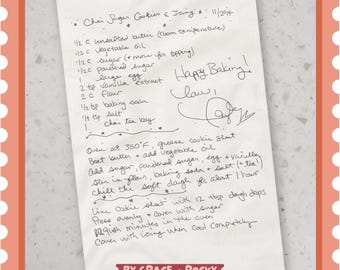 Chai Sugar Cookies & Icing 11/2014
1/2 c unsalted butter (room temperature)
1/2 c vegetable oil
1/2 c sugar (+ more for topping)
1/2 c powdered sugar
1 large egg
2 tsp vanilla extract
2 c flour
1/2 tsp baking soda
1/4 tsp salt
chai tea bag
Happy Baking!
Love,
Oven at 350°F, grease cookie sheet
Beat butter + add vegetable oil
Add sugar, powdered sugar, egg + vanilla
Stir in flour, baking soda + salt (+ tea)
Chill the soft dough for about 1 hour
Line cookie sheet with 12 tbsp dough drops
Press evenly + cover with sugar
minutes in the oven
Cover with icing when cool completely
BY GRACE ROCKY